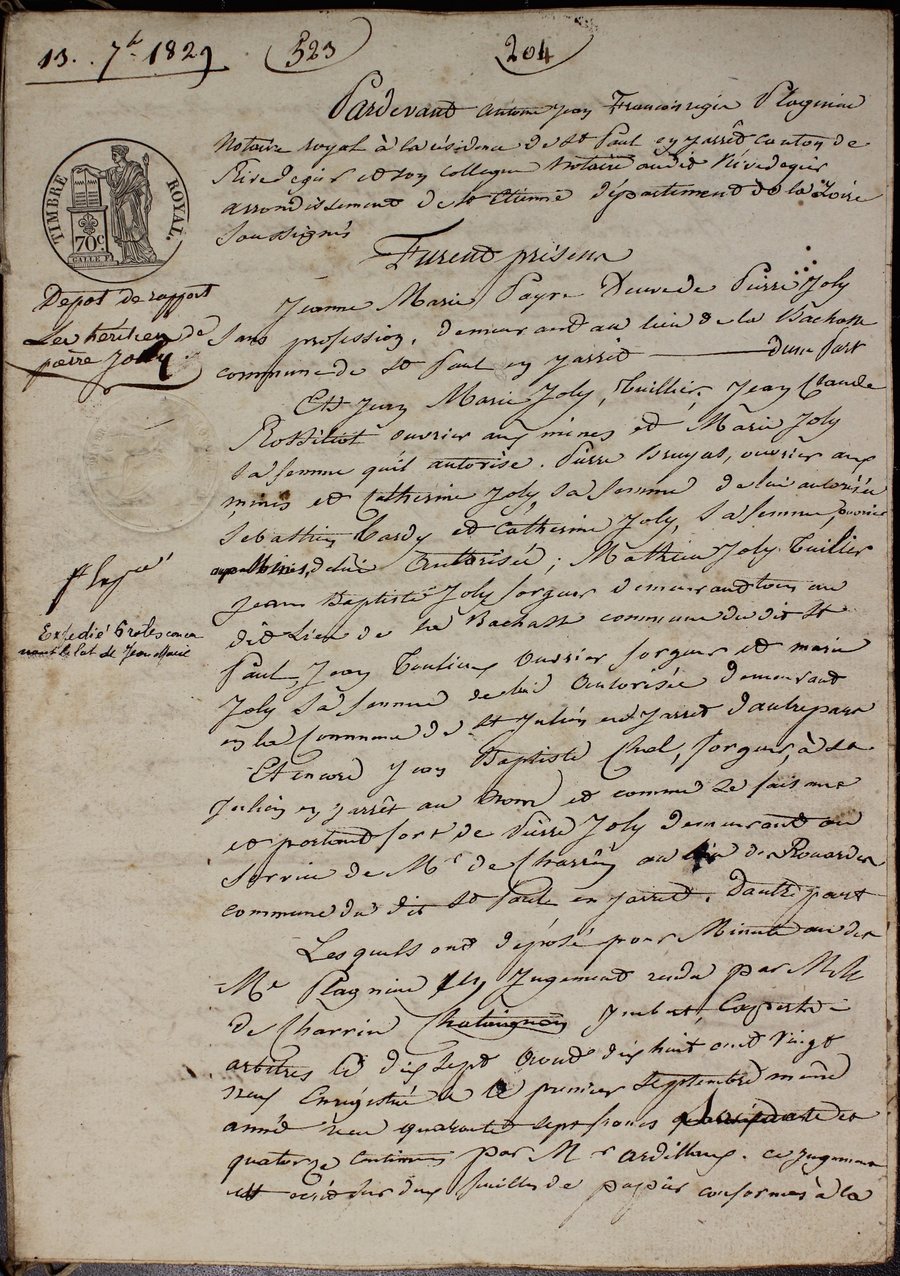 13. 7b. 1829
523
204
Pardevant antoine jean Francoisregis Plagnieu
Notaire royal à la résidence de St Paul en jarrêt canton de
Rivedegier et son collegue Notaire audit Rivedegier
arrondissement de St Etienne département de la Loire
Soussignés
TIMBRE ROYAL.
70c.
Furent présens
Depot de rapport
Les héritiers de
pierre Joly
Jeanne Marie Payre Veuve de Pierre Joly
Sans profession, demeurant au lieu de la Bachasse
commune de St Paul en jarret d'une part
Et Jean Marie Joly, Tuillier, Jean Claude
ouvrier aux mines et Marie Joly
Sa femme qu'il autorise. Pierre Bruyas, ouvrier aux
mines et Catherine Joly, Sa femme de lui autorisée
Sebastien Bardy et Catherine Joly, Sa femme, ouvrier
aux Mines, de lui autorisée; Mathieu Joly Tuilier
Jean Baptiste Joly forgeur demeurant tous au
dit Lieu de la Bachasse commune du dit St
Paul, Jean ouvrier forgeur et marie
Joly Sa femme de lui autorisée demeurant
en la Commune de St Julien en jarret d'autre part
Expedié 6 roles concer
nant le lot de Jean Marie
Et encore Jean Baptiste forgeur, à St
Julien en jarrêt au Nom et comme se faisant
et portant fort de Pierre Joly demeurant au
Service de Mr de au lieu de
commune du dit St Paul en jarret. D'autre part
Lesquels ont déposé pour Minute au dit
Me Plagnieu un Jugement rendu par MM
de Charrin Chataignon jmbert,
arbitres le dix sept aout dix huit cent vingt
neuf Enregistré le premier Septembre même
année reçu quarante sept francs
quatorze centimes par Mr ardillaux. ce jugement
est ecrit sur dix feuilles de papier conformes à la